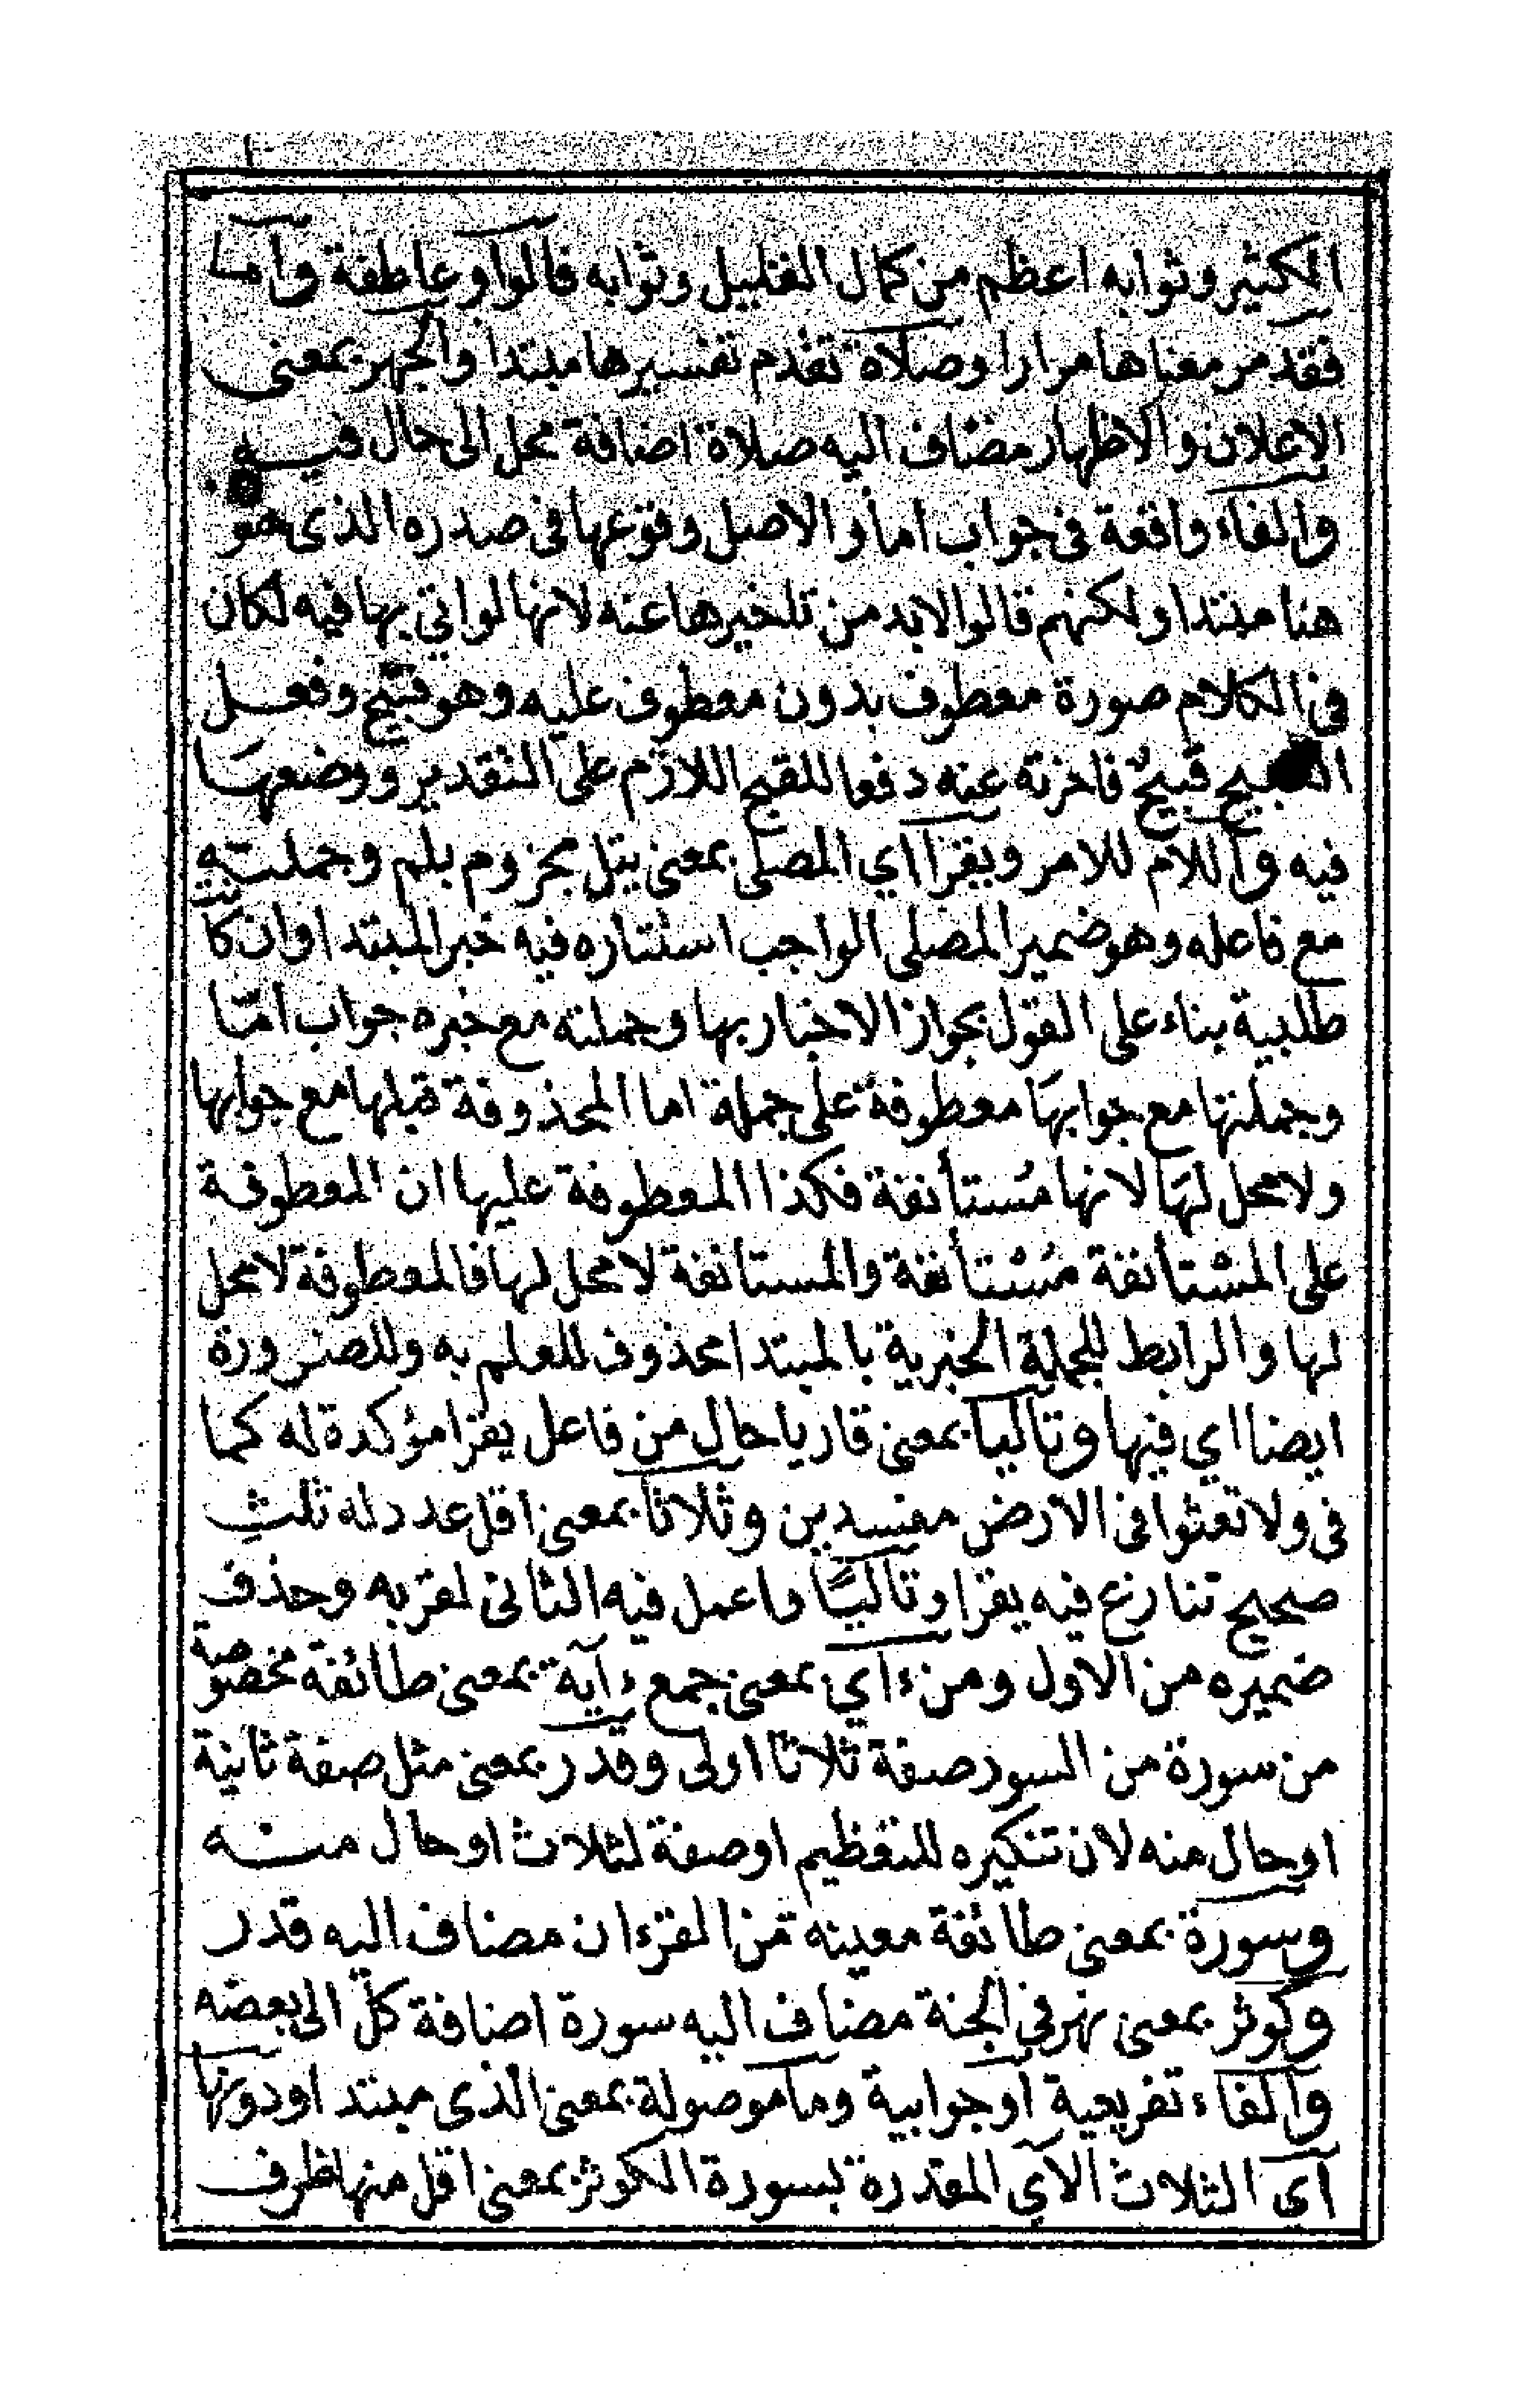 الكثير وثوابه اعظم من كمال القليل وثوابه فالواو عاطفة وأما
فقد مر معناها مرارا وصلاة تقدم تفسيرها مبتدا والجهر بمعنى
الاعلان والاظهار مضاف اليه صلاة اضافة محل الى حال فيه
والفاء واقعة في جواب اما والاصل وقوعها في صدره الذى هو
هنا مبتدا ولكنهم قالوا لابد من تاخيرها عنه لانها لو اتي بها فيه لكان
في الكلام صورة معطوف بدون معطوف عليه وهو قبيح وفعل
القبيح قبيح فاخرته عنه دفعا للقبح اللازم على التقدير ووضعها
فيه واللام للامر ويقرا اي المصلى بمعنى يتل مجزوم بلم وجملته
مع فاعله وهو ضمير المصلى الواجب استتاره فيه خبر المبتدا وان كانت
طلبية بناء على القول بجواز الاخبار بها وجملته مع خبره جواب امّا
وجملتها مع جوابها معطوفة على جملة اما المحذوفة قبلها مع جوابها
ولا محل لها لانها مُستأنفة فكذا المعطوفة عليها ان المعطوفة
على المستأنفة مُستأنفة والمستانفة لا محل لها فالمعطوفة لا محل
لها والرابط للجملة الخبرية بالمبتدا محذوف للعلم به وللضرورة
ايضا اي فيها وتاليا بمعنى قاريا حال من فاعل يقرا مؤكدة له كما
في ولا تعثوا في الارض مفسدين وثلاثا بمعنى اقل عدد له ثلث
صحيح تنازع فيه يقرا وتاليًا واعمل فيه الثانى لقربه وحذف
ضميره من الاول ومن ءاي بمعنى جمع ءاية بمعنى طائفة مخصوصة
من سورة من السور صفة ثلاثا اولى وقدر بمعنى مثل صفة ثانية
او حال منه لان تنكيره للتعظيم او صفة لثلاث او حال منه
وسورة بمعنى طائفة معينه من القرءان مضاف اليه قدر
وكوثر بمعنى نهر في الجنة مضاف اليه سورة اضافة كل الى بعضه
والفاء تفريعية أو جوابية وما موصولة بمعنى الذى مبتدا ودونها
أى الثلاث الآي المقدرة بسورة الكوثر بمعنى اقل منها ظرف